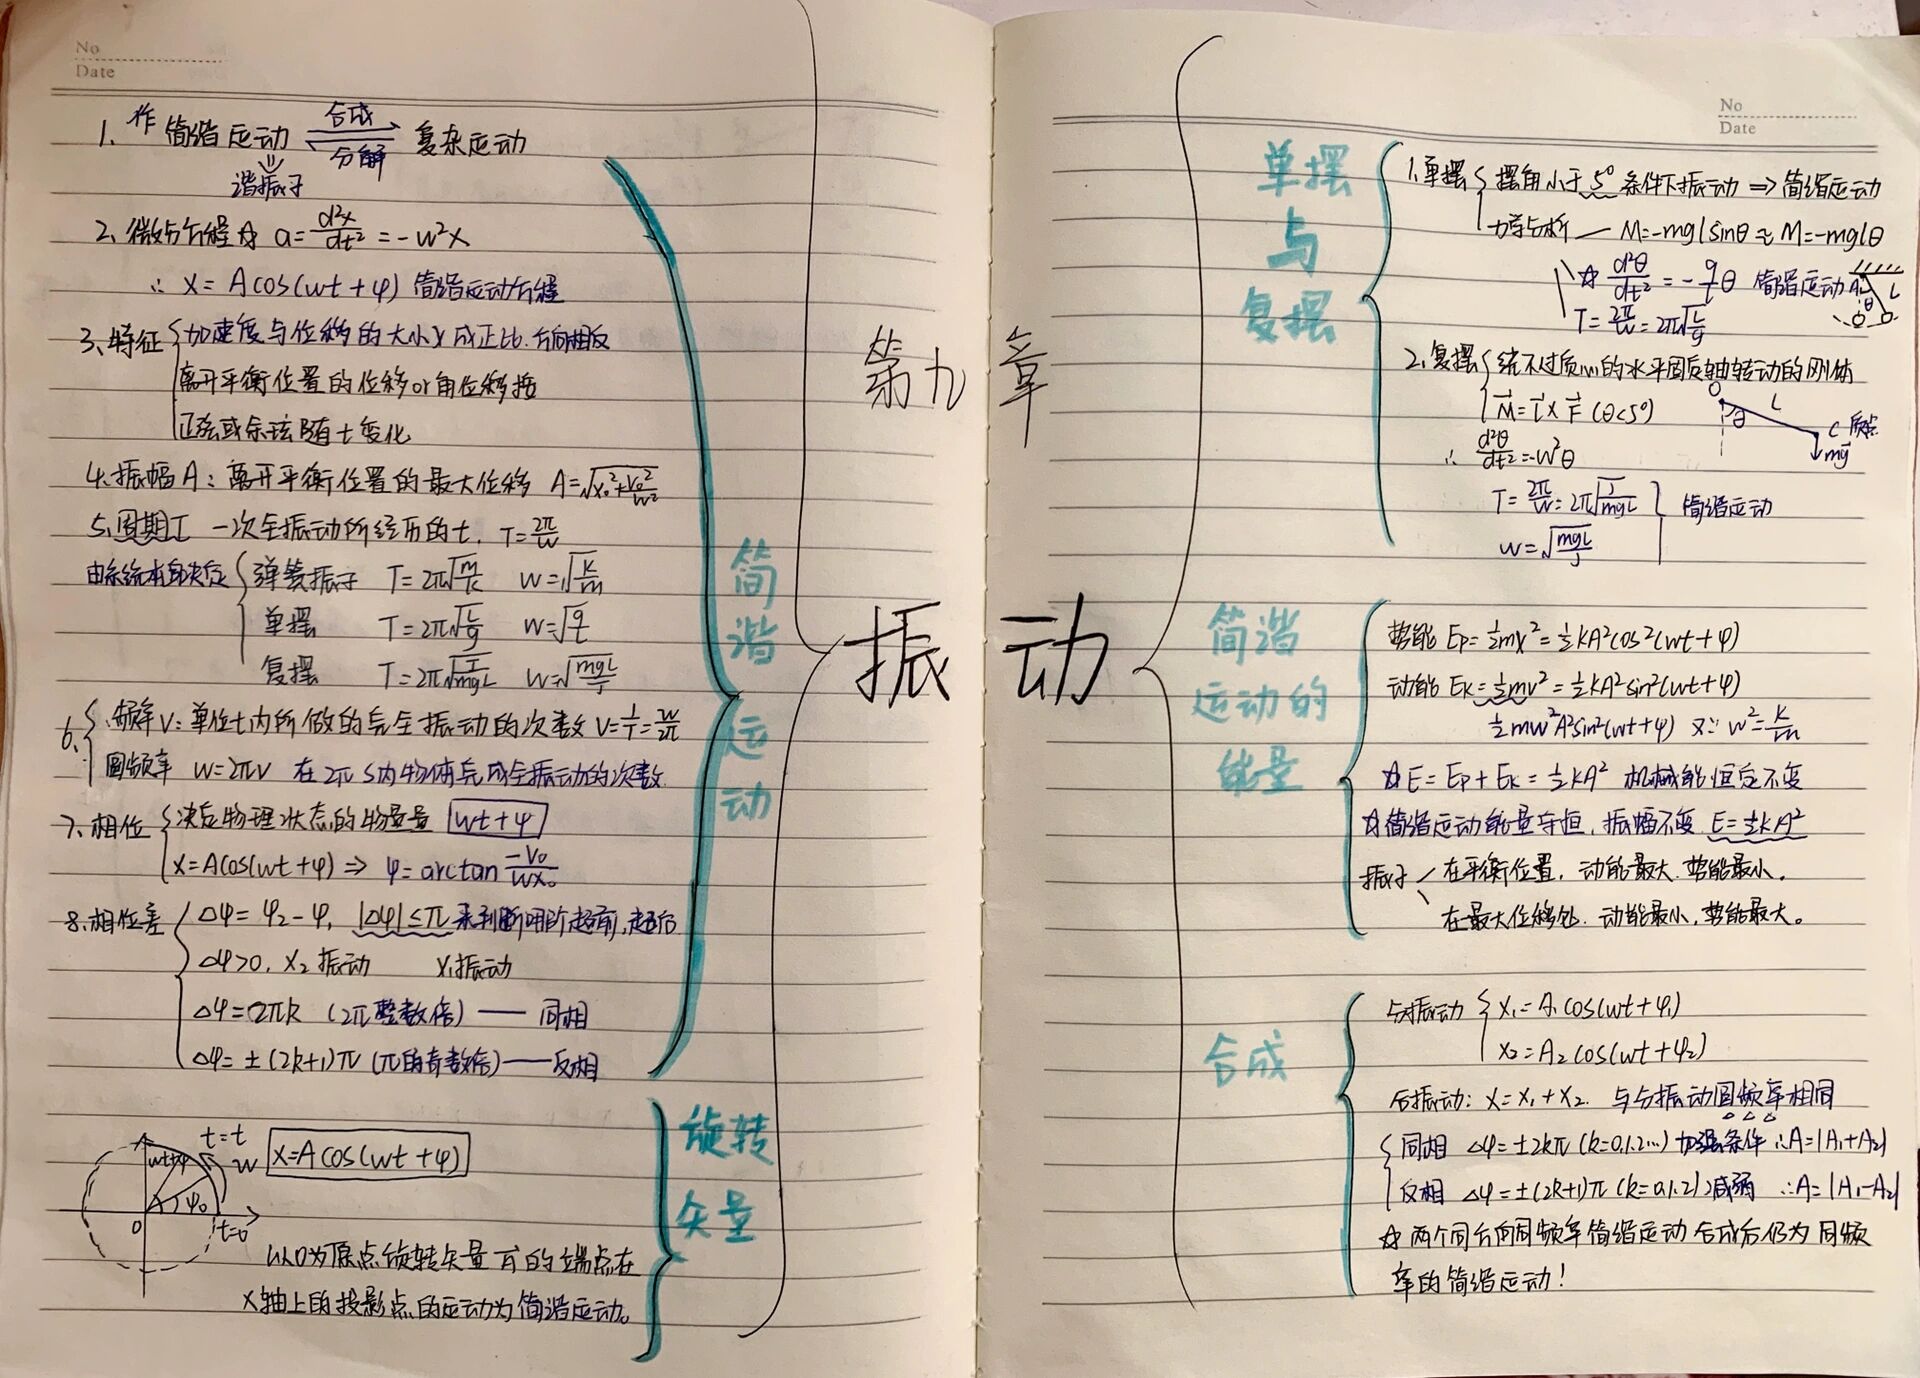 No
Date
1. 作简谐运动 合成 分解 复杂运动
谐振子
2、微分方程 ☆ a=d²x/dt²=-w²x
∴ x=Acos(wt+φ) 简谐运动方程
3、特征 加速度与位移的大小x成正比.方向相反
离开平衡位置的位移or角位移按
正弦或余弦随t变化
4、振幅A：离开平衡位置的最大位移 A=√(x₀²+v₀²/w²)
5、周期T 一次全振动所经历的t. T=2π/w
由系统本身决定 弹簧振子 T=2π√(m/k) w=√(k/m)
单摆 T=2π√(L/g) w=√(g/L)
复摆 T=2π√(J/mgL) w=√(mgL/J)
6、频率ν：单位t内所做的完全振动的次数 ν=1/T=w/2π
圆频率 w=2πν 在2π s内物体完成全振动的次数.
7、相位 决定物理状态的物理量 wt+φ
x=Acos(wt+φ)⇒ φ=arctan -v₀/wx₀
8、相位差 Δφ=φ₂-φ₁ |Δφ|≤π 来判断哪个超前,超后
Δφ>0. x₂振动 x₁振动
Δφ=2πk (2π整数倍) —— 同相
Δφ=±(2k+1)π (π的奇数倍)——反相
简谐运动
t=t
wt+φ
w
x=Acos(wt+φ)
φ₀
0
t=0
以O为原点旋转矢量A的端点在
x轴上的投影点的运动为简谐运动。
旋转
矢量
第九章
振动
No
Date
单摆
与
复摆
1.单摆 摆角小于5°条件下振动 ⇒ 简谐运动
力学分析 — M=-mglsinθ ≈ M=-mglθ
☆ d²θ/dt²=-g/l θ 简谐运动
A
θ
L
T=2π/w=2π√(L/g)
2.复摆 绕不过质心的水平固定轴转动的刚体
M=l×F (θ<5°)
O
L
θ
C 质点
mg
∴ d²θ/dt²=-w²θ
T=2π/w=2π√(J/mgL) 简谐运动
w=√(mgL/J)
简谐
运动的
能量
势能 Ep=½mx²=½kA²cos²(wt+φ)
动能 Ek=½mv²=½kA²sin²(wt+φ)
½mw²A²sin²(wt+φ) 又∵ w²=k/m
☆E=Ep+Ek=½kA² 机械能恒定不变
☆简谐运动能量守恒, 振幅不变 E=½kA²
振子 在平衡位置, 动能最大.势能最小.
在最大位移处. 动能最小, 势能最大。
合成
分振动 x₁=A₁cos(wt+φ₁)
x₂=A₂cos(wt+φ₂)
合振动: x=x₁+x₂. 与分振动圆频率相同
同相 Δφ=±2kπ (k=0.1.2…) 加强条件 ∴A=|A₁+A₂|
反相 Δφ=±(2k+1)π (k=0.1.2) 减弱 ∴A=|A₁-A₂|
☆ 两个同方向同频率简谐运动合成后仍为同频
率的简谐运动!